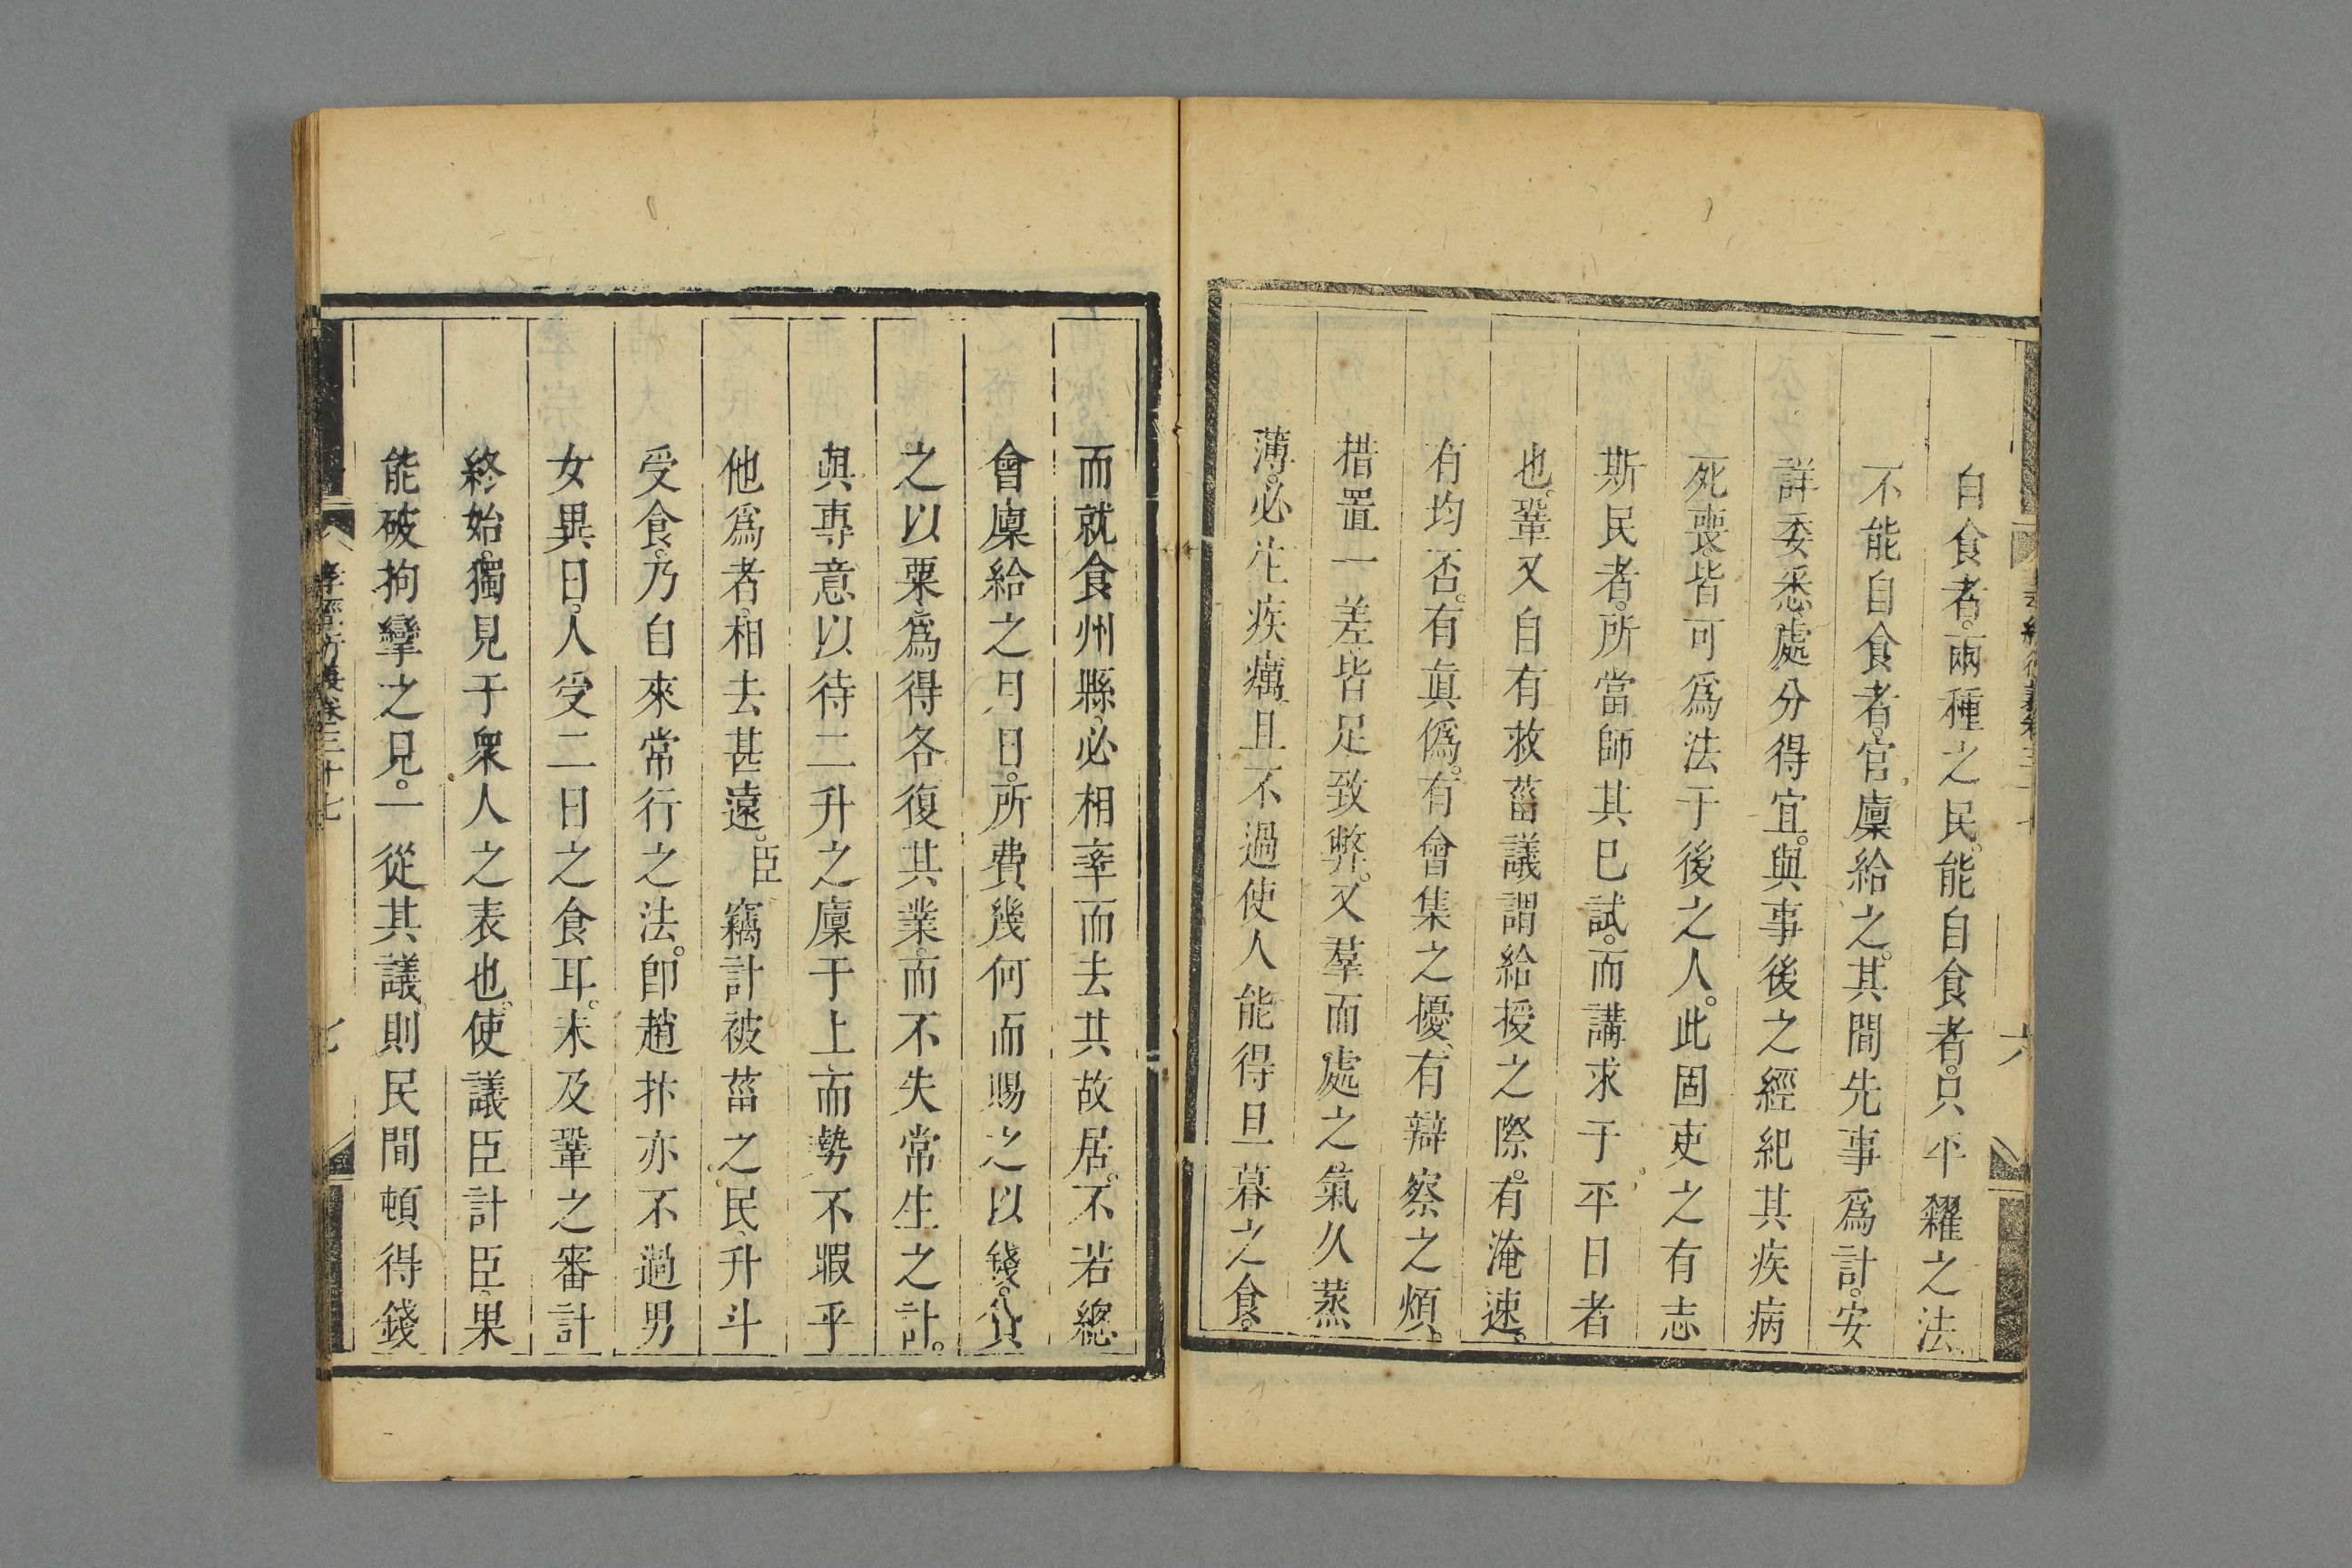 自食者。兩種之民。能自食者。只平糶之法
不能自食者。官廩給之。其間先事爲計。安
詳委悉。處分得宜。與事後之經紀其疾病
死喪。皆可爲法于後之人。此固吏之有志
斯民者。所當師其已試。而講求于平日者
也。鞏又自有救葘議謂給授之際。有淹速。
有均否。有眞僞。有會集之擾、有辯察之煩、
措置一差、皆足致弊。又羣而處之、氣久蒸
薄。必生疾癘、且不過使人能得旦暮之食。
而就食州縣、必相率而去其故居。不若總
會廩給之月日。所費幾何而賜之以錢。貸
之以粟、爲得各復其業、而不失常生之計。
與專意以待二升之廩于上、而勢不暇乎
他爲者、相去甚遠。臣竊計被葘之民、升斗
受食。乃自來常行之法。卽趙抃亦不過男
女異日。人受二日之食耳。未及鞏之審計
終始。獨見于衆人之表也。使議臣計臣、果
能破拘攣之見。一從其議、則民間頓得錢
孝經衍義卷三十七
七
六